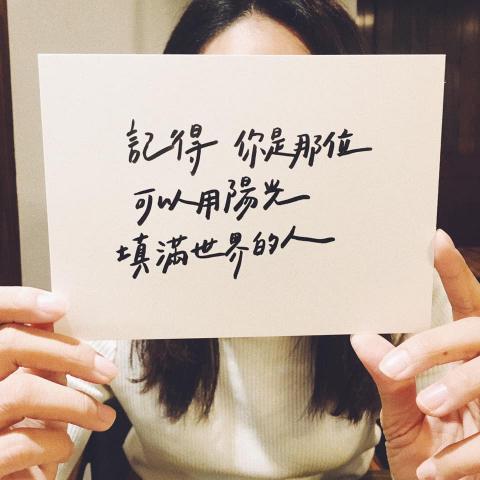 記得 你是那位
可以用陽光
填滿世界的人